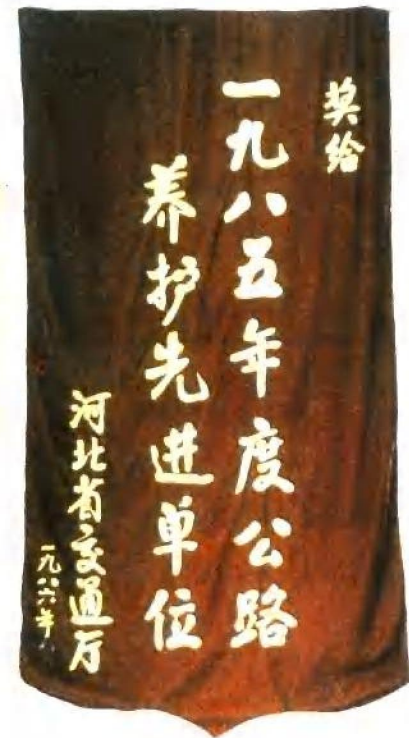 奖给
一九八五年度公路
养护先进单位
河北省交通厅
一九八六年